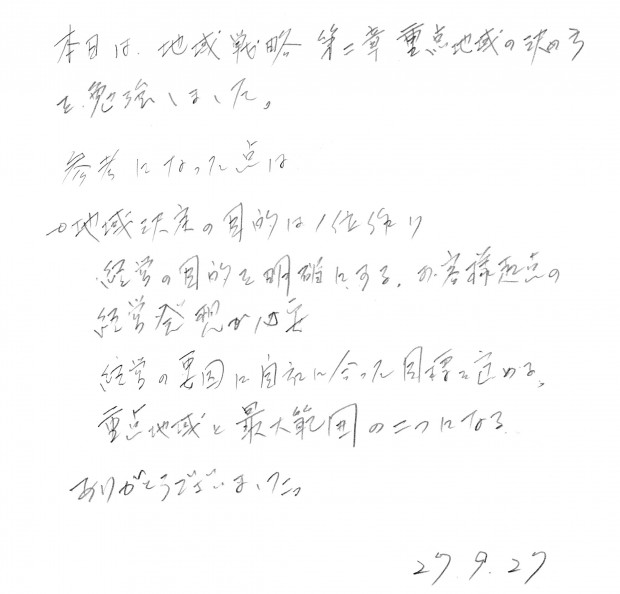 本日は、地域戦略 第二章 重点地域の決め方
を勉強しました。
参考になった点は
地域決定の目的は1位作り
経営の目的を明確にする。お客様起点の
経営発想が必要
経営の要因に自社に合った目標を定める。
重点地域と最大範囲の二つになる
ありがとうございました。
27.9.27